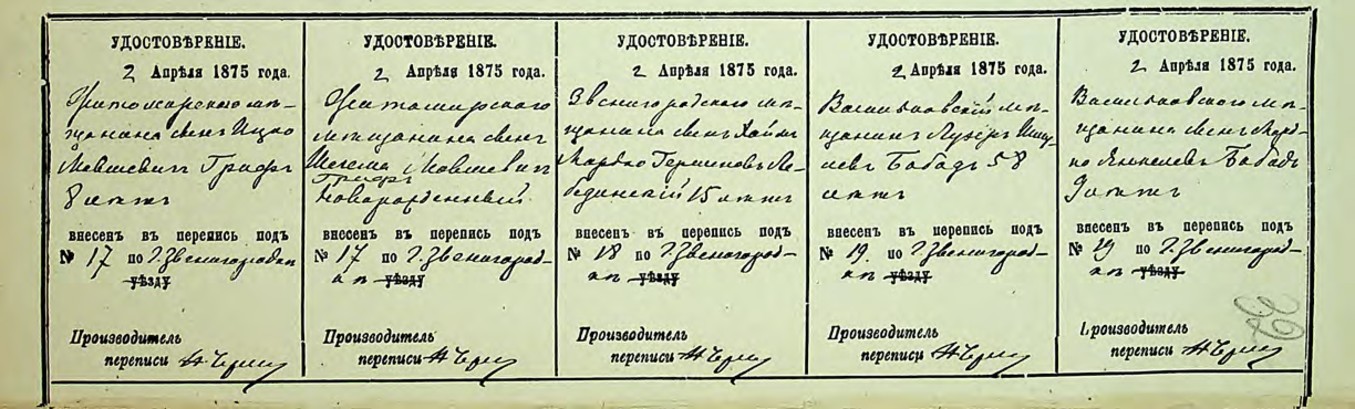 УДОСТОВѢРЕНІЕ.
2 Апрѣля 1875 года.
Житомирскаго мѣ-
щанина сынъ Ицко
Мовшевичъ Графъ
8 лѣтъ
внесенъ въ перепись подъ
№ 17 по Г. Звенигородкѣ
уѣзду
Производитель
переписи
УДОСТОВѢРЕНІЕ.
2 Апрѣля 1875 года.
Житомирскаго
мѣщанина сынъ
Мовшевичъ
Графъ
Новорожденный
внесенъ въ перепись подъ
№ 17 по Г. Звенигород-
кѣ уѣзду
Производитель
переписи
УДОСТОВѢРЕНІЕ.
2 Апрѣля 1875 года.
Звенигородскаго мѣ-
щанина сынъ Хаимъ
Мордко Гершковъ Ле-
бединскій 15 лѣтъ
внесенъ въ перепись подъ
№ 18 по Г. Звенигород-
кѣ уѣзду
Производитель
переписи
УДОСТОВѢРЕНІЕ.
2 Апрѣля 1875 года.
Васильковскій мѣ-
щанинъ Лузеръ
Бабадъ 58
лѣтъ
внесенъ въ перепись подъ
№ 19 по Г. Звенигород-
кѣ уѣзду
Производитель
переписи
УДОСТОВѢРЕНІЕ.
2 Апрѣля 1875 года.
Васильковскаго мѣ-
щанина сынъ Морд-
ко Янкелевъ Бабадъ
9 лѣтъ
внесенъ въ перепись подъ
№ 19 по Г. Звенигород-
кѣ уѣзду
Производитель
переписи